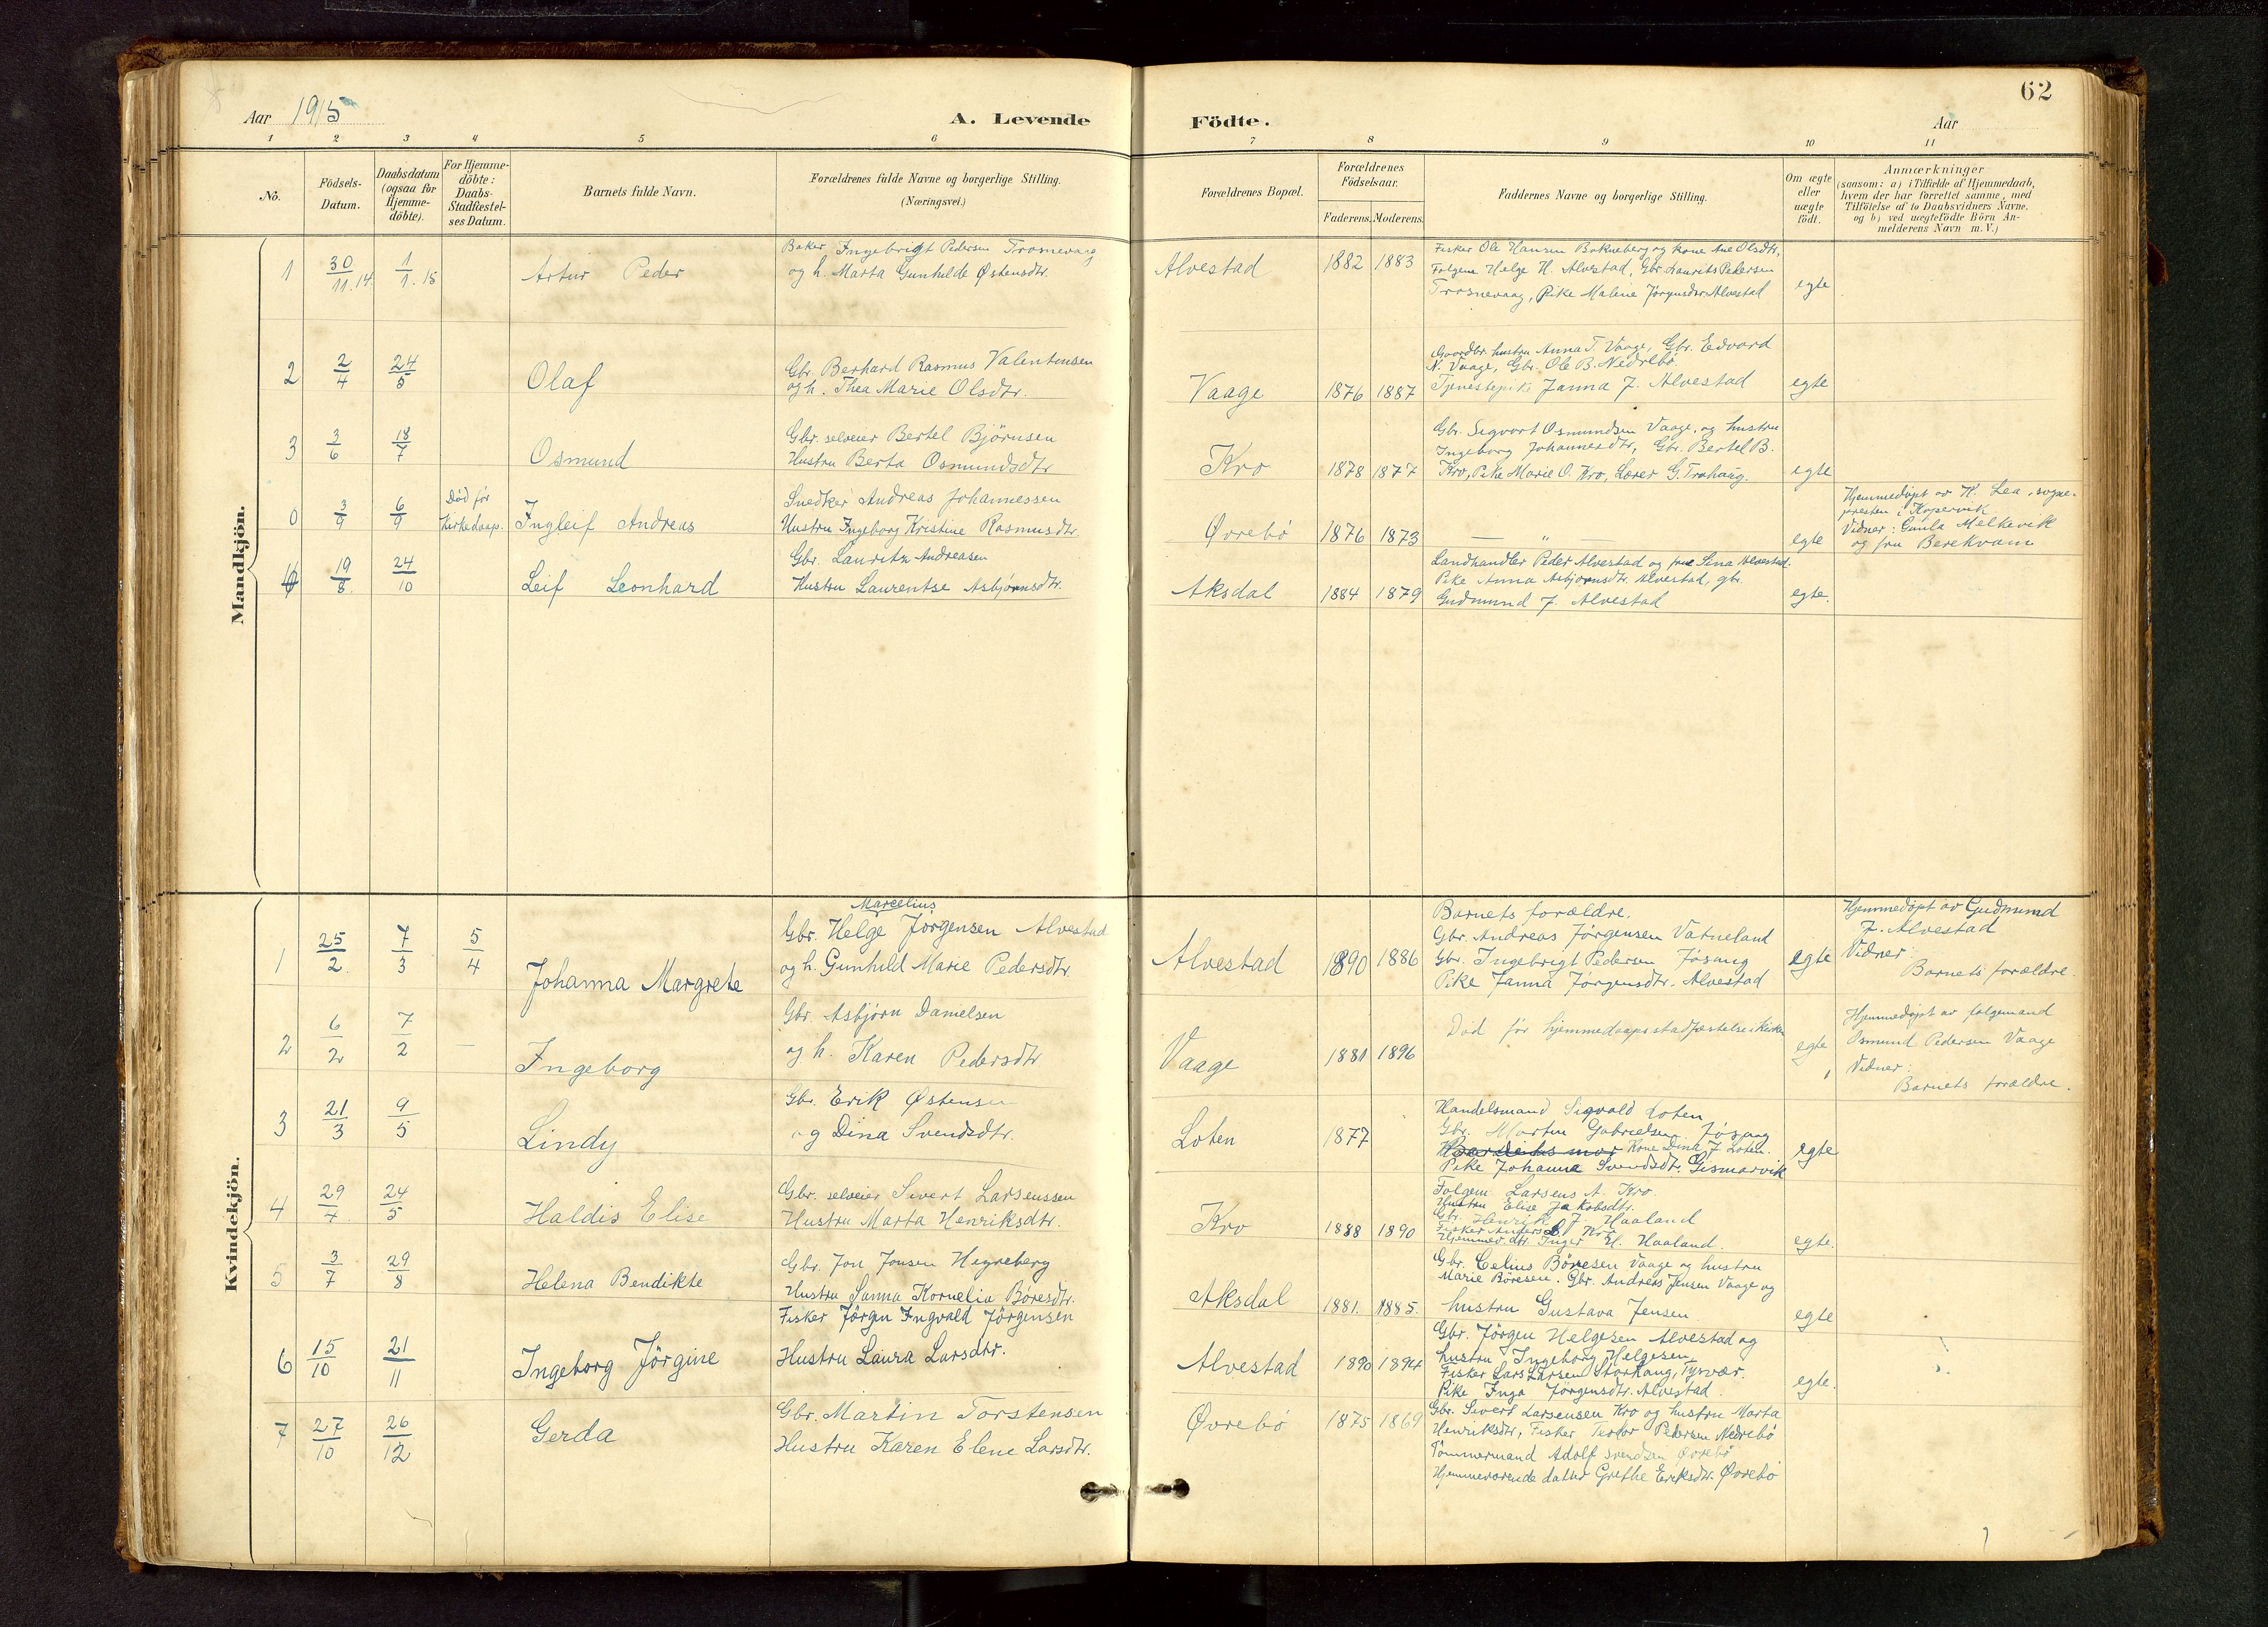 62
Aar 1915
A. Levende Födte.
Aar
1 2 3 4 5 6 7 8 9 10 11
No.
Födsels-
Datum.
Daabsdatum
(ogsaa for
Hjemme-
döbte).
For Hjemme-
döbte:
Daabs-
Stadfæstel-
ses Datum.
Barnets fulde Navn.
Forældrenes fulde Navne og borgerlige Stilling.
(Næringsvei.)
Forældrenes Bopæl.
Forældrenes
Födselsaar.
Faderens. Moderens.
Faddernes Navne og borgerlige Stilling.
Om ægte
eller
uægte
födt.
Anmærkninger
(saasom: a) i Tilfælde af Hjemmedaab,
hvem der har forrettet samme, med
Tilföielse af to Daabsvidners Navne,
og b) ved uægtefödte Börn An-
melderens Navn m. V.)
Mandkjön.
1 30/11.14. 1/1.15 Artur Peder
Baker Ingebrigt Pedersen Trosnevaag
og h. Marta Gunhilde Østensdtr.
Alvestad 1882 1883
Fisker Ole Hansen Bokneberg og kone Ane Olsdtr.,
Folgem. Helge H. Alvestad, Gbr. Laurits Pedersen
Trosnevaag, Pike Malene Jørgensdtr Alvestad
egte
2 2/4 24/5 Olaf
Gbr. Berhard Rasmus Valentinsen
og h. Thea Marie Olsdtr.
Vaage 1876 1887
Gaardbr. hustru Anna T. Vaage, Gbr. Edvard
N. Vaage, Gbr. Ole B. Nedrebö
Tjenestepike Janna J. Alvestad
egte
3 3/6 18/7 Osmund
Gbr. selveier Bertel Björnsen
Hustru Berta Osmundsdtr
Kro 1878 1877
Gbr. Sigvart Osmundsen Vaage, og hustru
Ingeborg Johannesdtr, Gbr. Bertel B.
Kro, Pike Marie O. Kro, Lærer G. Trahaug.
egte
0 3/9 6/9
Död för
kirkedaap.
Ingleif Andreas
Snedker Andreas Johannessen
Hustru Ingeborg Kristine Rasmusdtr.
Øvrebö 1876 1873
— „ —
egte
Hjemmedöpt av K. Lea, sogne-
presten i Kopervik
Vidner: Gunla Melkevik
og fru Berekvam
4 19/8. 24/10 Leif Leonhard
Gbr. Lauritz Andreasen
Hustru Laurentse Asbjörnsdtr.
Aksdal 1884 1879
Landhandler Peder Alvestad og frue Sina Alvestad.
Pike Anna Asbjörnsdtr. Alvestad, gbr.
Gudmund J. Alvestad
egte.
Kvindekjön.
1 25/2. 7/3 5/4 Johanna Margrete
Marcelius
Gbr. Helge Jörgensen Alvestad
og h. Gunhild Marie Pedersdtr
Alvestad 1890 1886
Barnets forældre.
Gbr. Andreas Jörgensen Vatneland
Gbr. Ingebrigt Pedersen Jösang
Pike Janna Jörgensdtr. Alvestad
egte
Hjemmedöpt av Gudmund
J. Alvestad
Vidner:
Barnets forældre.
2 6/2 7/2 — Ingeborg
Gbr. Asbjörn Danielsen
og h. Karen Pedersdtr
Vaage 1881 1896
Död för hjemmedaapsstadfæstelse i kirken
egte,
Hjemmedöpt av folgemand
Osmund Pedersen Vaage
Vidner:
Barnets forældre.
3 21/3 9/5 Lindy
Gbr. Erik Østensen
og Dina Svendsdtr.
Loten 1877
Handelsmand Sigvald Loten
Gbr. Martin Gabrielsen Jösang
Kone Dina J Loten.
Pike Johanna Svendsdtr. Gismarvik
egte
4 29/4. 24/5 Haldis Elise
Gbr. selveier Sivert Larsenssen
Hustru Marta Henriksdtr.
Kro 1888 1890
Folgem. Larsens A. Kro.
Hustru Elise Jakobsdtr.
Gbr. Henrik J. Haaland
Fisker Anders L. Kro
Hjemmev. dtr. Inger H. Haaland.
egte.
5 3/7 29/8 Helena Bendikte
Gbr. Jon Jonsen Hegreberg
Hustru Sanna Kornelia Böresdtr.
Aksdal 1881. 1885.
Gbr. Celius Böresen Vaage og hustru
Marie Böresen. Gbr. Andreas Jensen Vaage og
hustru Gustava Jensen
egte
6 15/10 21/11 Ingeborg Jörgine
Fisker Jörgen Ingvald Jörgensen
Hustru Laura Larsdtr.
Alvestad 1890 1894
Gbr. Jörgen Helgesen Alvestad og
hustru Ingeborg Helgesen
Fisker Lars Larsen Storhaug, Tysvær.
Pike Inga Jörgensdtr. Alvestad.
egte.
7 27/10 26/12 Gerda
Gbr. Martin Torstensen
Hustru Karen Elene Larsdtr.
Øvrebö 1875 1869
Gbr. Sivert Larsensen Kro og hustru Marta
Henriksdtr, Fisker Teodor Pedersen Nedrebö
Tömmermand Adolf Svendsen Øvrebö
Hjemmeværende datter Grethe Eriksdtr. Øvrebö